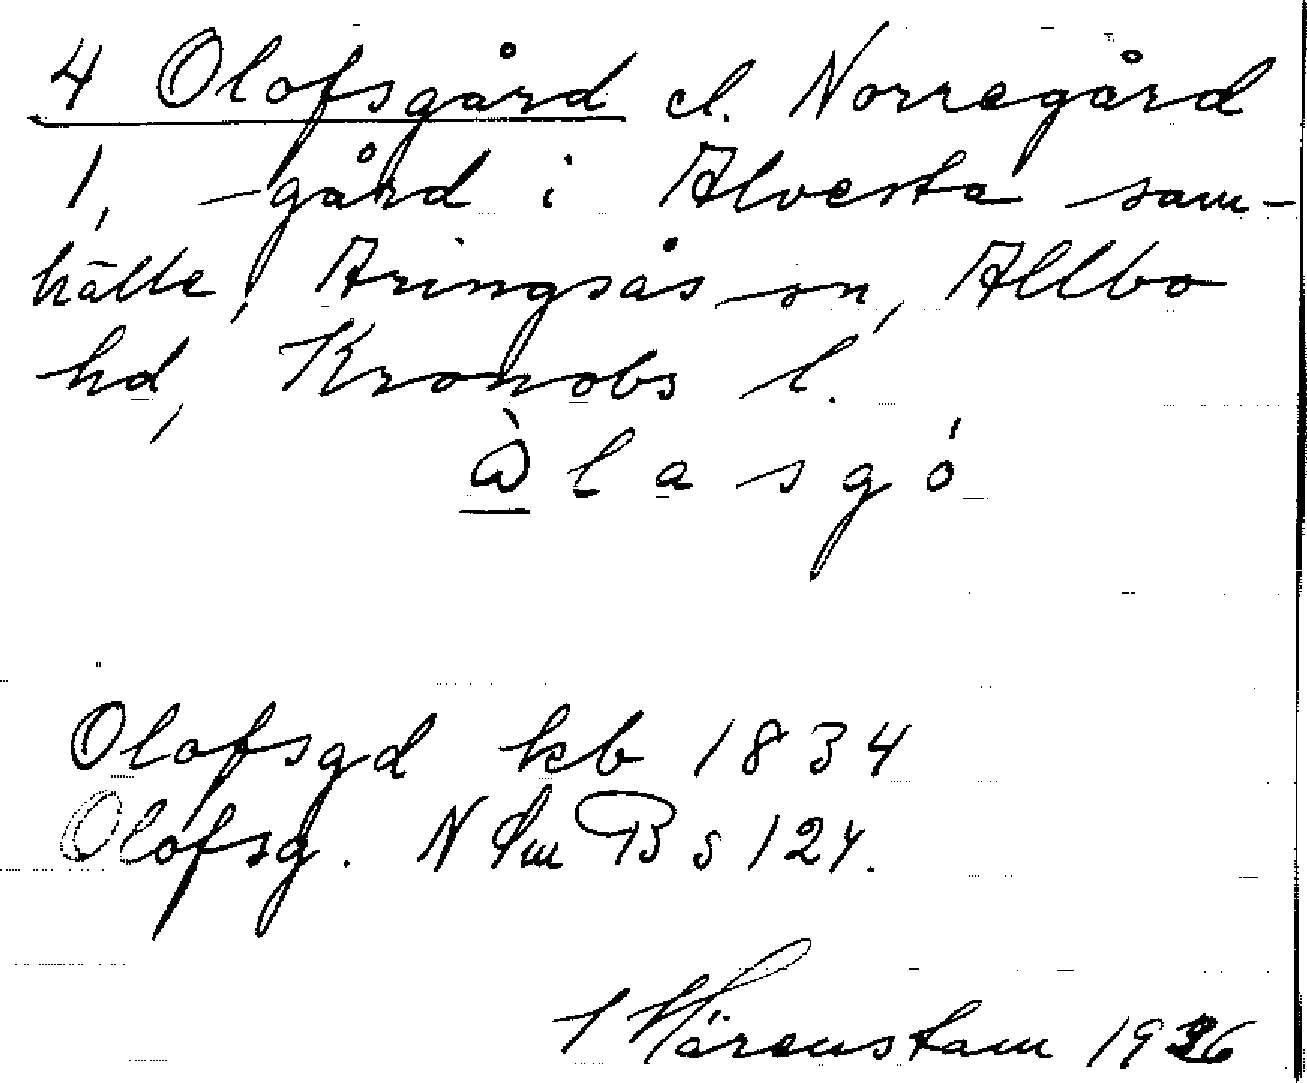 4 Olofsgård el. Norregård
1, -gård i Alvesta sam-
hälle, Aringsås sn, Allbo
hd, Kronobs l.
lasgó
Olofsgd kb 1834
Olofsg. N Sm B s 124.
Härenstam 1926